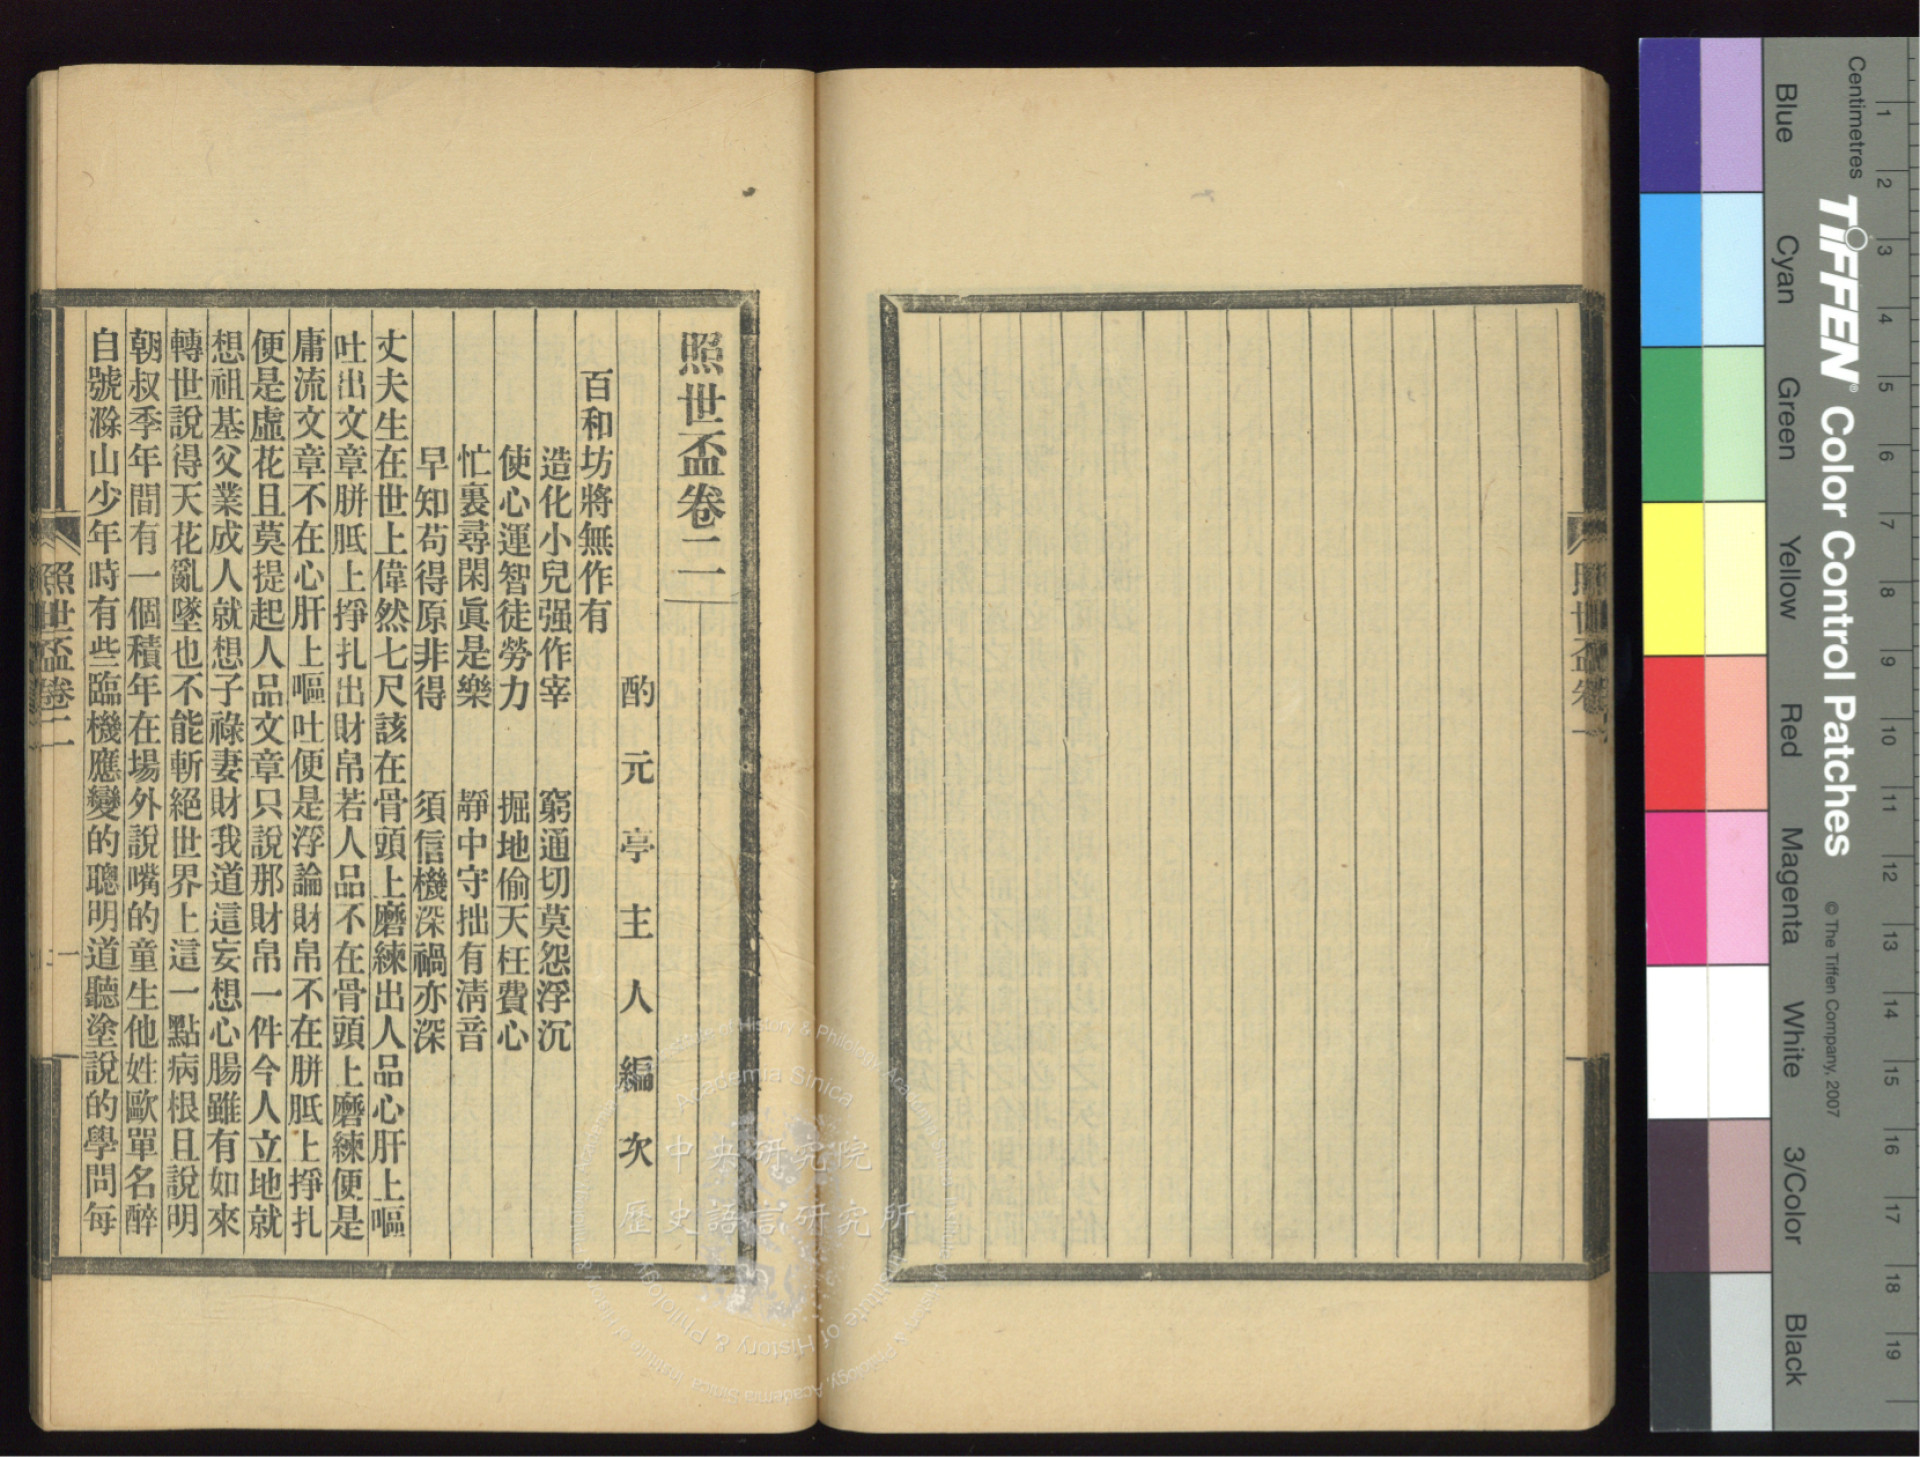 照世盃卷二
酌元亭主人編次
百和坊將無作有
造化小兒强作宰　窮通切莫怨浮沉
使心運智徒勞力　掘地偷天枉費心
忙裏尋閑眞是樂　靜中守拙有淸音
早知苟得原非得　須信機深禍亦深
丈夫生在世上偉然七尺該在骨頭上磨練出人品心肝上嘔
吐出文章胼胝上掙扎出財帛若人品不在骨頭上磨練便是
庸流文章不在心肝上嘔吐便是浮論財帛不在胼胝上掙扎
便是虛花且莫提起人品文章只說那財帛一件今人立地就
想祖基父業成人就想子祿妻財我道這妄想心腸雖有如來
轉世說得天花亂墜也不能斬絕世界上這一點病根且說明
朝叔季年間有一個積年在場外說嘴的童生他姓歐單名醉
自號滁山少年時有些臨機應變的聰明道聽塗說的學問每
照世盃卷二
一
照世盃卷一
中央研究院
歷史語言研究所
Academia Sinica
Institute of History & Philology, Academia Sinica
Centimetres
TIFFEN® Color Control Patches
© The Tiffen Company, 2007
Blue
Cyan
Green
Yellow
Red
Magenta
White
3/Color
Black
1
2
3
4
5
6
7
8
9
10
11
12
13
14
15
16
17
18
19